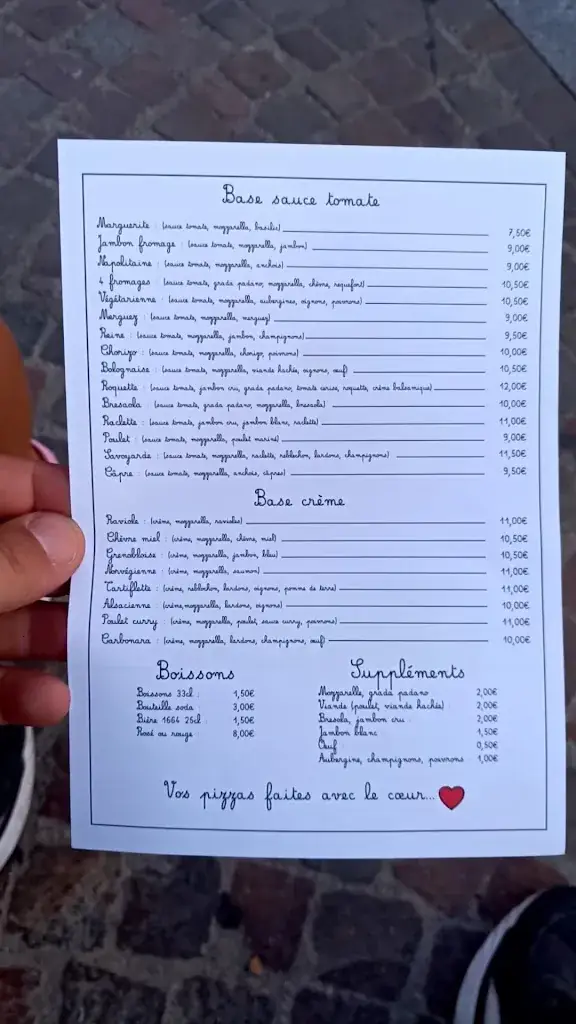 Base sauce tomate
Marguerite : (sauce tomate, mozzarella, basilic) 7,50€
Jambon fromage : (sauce tomate, mozzarella, jambon) 9,00€
Napolitaine : (sauce tomate, mozzarella, anchois) 9,00€
4 fromages : (sauce tomate, grada padano, mozzarella, chèvre, roquefort) 10,50€
Végétarienne : (sauce tomate, mozzarella, aubergines, oignons, poivrons) 10,50€
Merguez : (sauce tomate, mozzarella, merguez) 9,00€
Reine : (sauce tomate, mozzarella, jambon, champignons) 9,50€
Chorizo : (sauce tomate, mozzarella, chorizo, poivrons) 10,00€
Bolognaise : (sauce tomate, mozzarella, viande hachée, oignons, œuf) 10,50€
Roquette : (sauce tomate, jambon cru, grada padano, tomate cerise, roquette, crème balsamique) 12,00€
Bresaola : (sauce tomate, grada padano, mozzarella, bresaola) 10,00€
Raclette : (sauce tomate, jambon cru, jambon blanc, raclette) 11,00€
Poulet : (sauce tomate, mozzarella, poulet mariné) 9,00€
Savoyarde : (sauce tomate, mozzarella, raclette, reblochon, lardons, champignons) 11,50€
Câpre : (sauce tomate, mozzarella, anchois, câpres) 9,50€
Base crème
Raviole : (crème, mozzarella, ravioles) 11,00€
Chèvre miel : (crème, mozzarella, chèvre, miel) 10,50€
Grenobloise : (crème, mozzarella, jambon, bleu) 10,50€
Norvégienne : (crème, mozzarella, saumon) 11,00€
Tartiflette : (crème, reblochon, lardons, oignons, pomme de terre) 11,00€
Alsacienne : (crème,mozzarella, lardons, oignons) 10,00€
Poulet curry : (crème, mozzarella, poulet, sauce curry, poivrons) 11,00€
Carbonara : (crème, mozzarella, lardons, champignons, œuf) 10,00€
Boissons
Boissons 33cl : 1,50€
Bouteille soda : 3,00€
Bière 1664 25cl : 1,50€
Rosé ou rouge : 8,00€
Suppléments
Mozzarelle, grada padano 2,00€
Viande (poulet, viande hachée) : 2,00€
Bresola, jambon cru : 2,00€
Jambon blanc 1,50€
Œuf 0,50€
Aubergine, champignons, poivrons 1,00€
Vos pizzas faites avec le cœur...